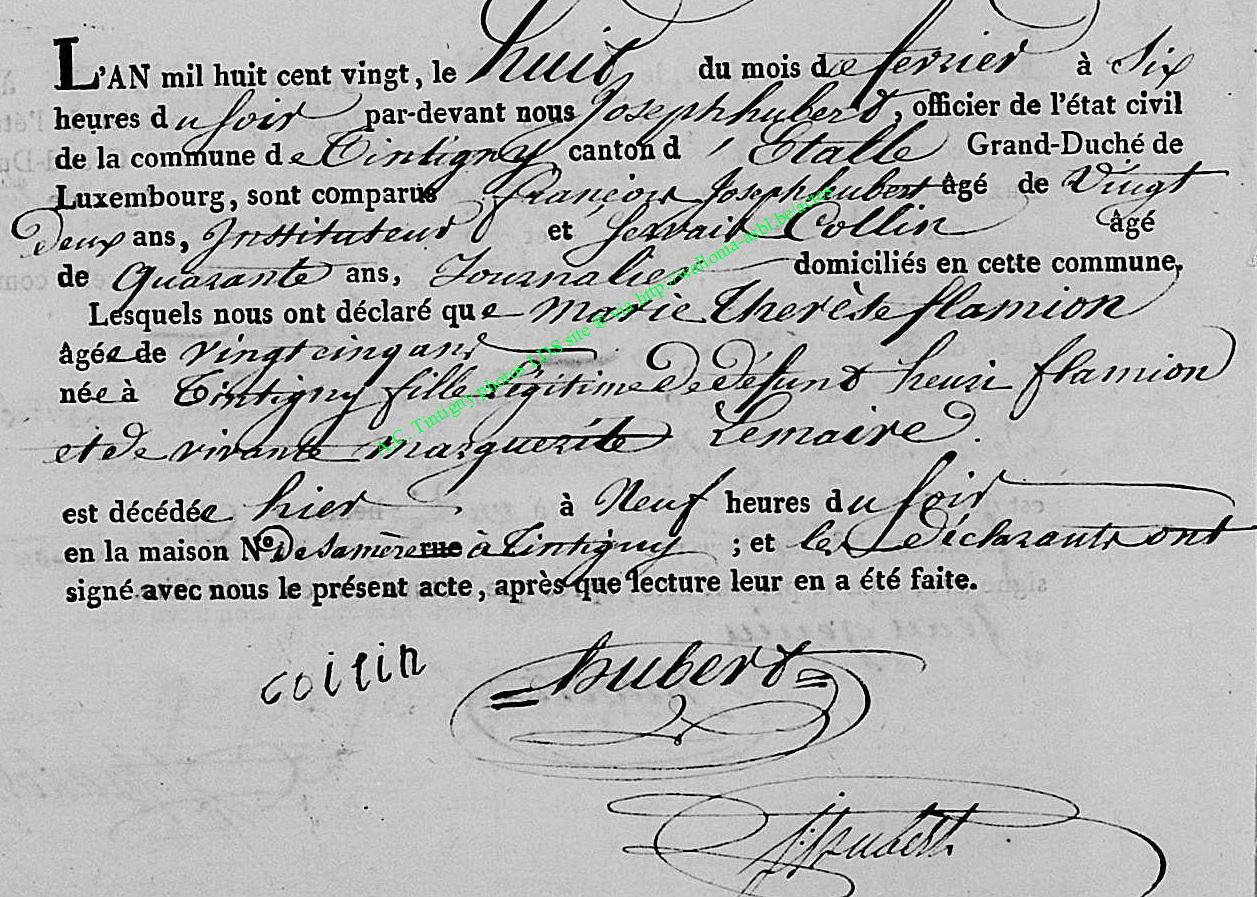 L'AN mil huit cent vingt, le huit du mois de fevrier à Six
heures du soir par-devant nous Joseph hubert, officier de l'état civil
de la commune de Tintigny canton d'Etalle Grand-Duché de
Luxembourg, sont comparus françois Joseph hubert âgé de Vingt
Deux ans, Instituteur et Servais Collin âgé
de Quarante ans, Journalier domiciliés en cette commune,
Lesquels nous ont déclaré que marie Therèse flamion
âgée de vingt cinq ans
née à Tintigny fille légitime De défunt henri flamion
et de vivante marguerite Lemaire.
est décédée hier à Neuf heures du soir
en la maison No De sa mère rue à Tintigny ; et les Déclarants ont
signé avec nous le présent acte, après que lecture leur en a été faite.
collin hubert
hubert
A.C. Tintigny photos LDS site & via http://wallonia-asbl.be/actes